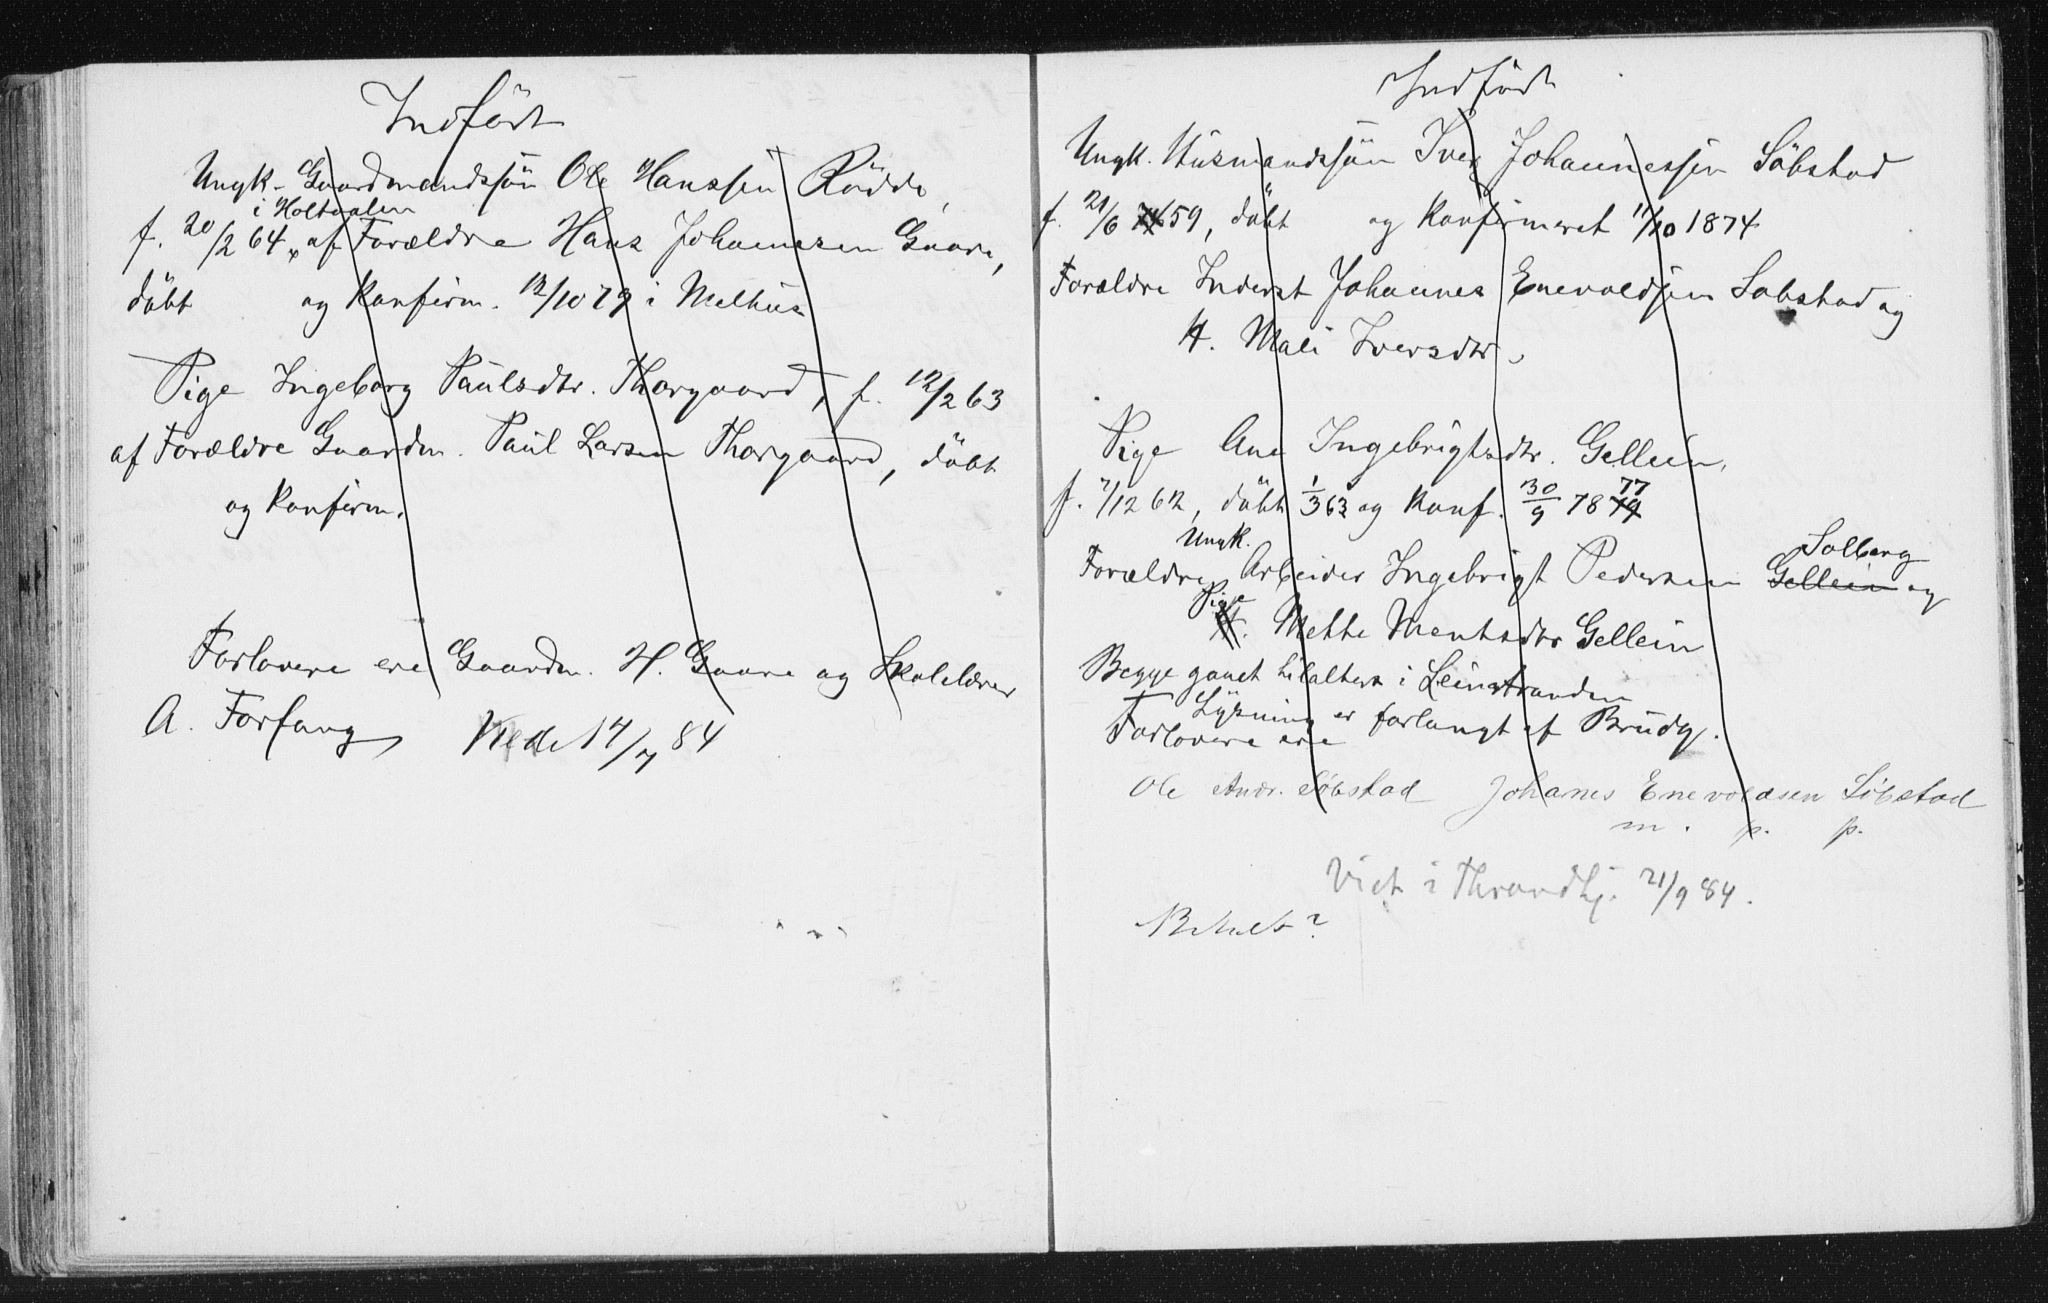 Indført
Ungk. Gaardmandssøn Ole Hanssen Rødde,
i Holtaalen
f. 20/2 64, af Forældre Hans Johannesen Gaare,
döbt og konfirm. 12/10 79 i Melhus
Pige Ingeborg Paulsdtr. Thorgaard, f. 12/2 63
af Forældre Gaardm. Paul Larsen Thorgaard, döbt
og konfirm.
Forlovere ere Gaardm. H. Gaare og Skolelærer
A. Forfang 17/7 84
Indført
Ungk. Husmandssøn Iver Johannessen Söbstad
f. 21/6 59, döbt og konfirmeret 11/10 1874
Forældre Inderst Johannes Enevoldsen Søbstad og
H. Mali Iversdtr.
Pige Ane Ingebrigtsdtr. Gellein,
f. 7/12 62, döbt 1/3 63 og konf. 30/9 18 79 77
Ungk. Solberg
Forældre Arbeider Ingebrigt Pedersen Gellein og
Pige
H. Mette Mentsdtr Gellein
Begge ganet til alters i Leinstranden
Lysning er forlangt af Brudg.
Forlovere ere
Ole Andr. Søbstad Johanes Enevoldsen Söbstad
m. p. p.
Viet i Throndhj. 21/9 84.